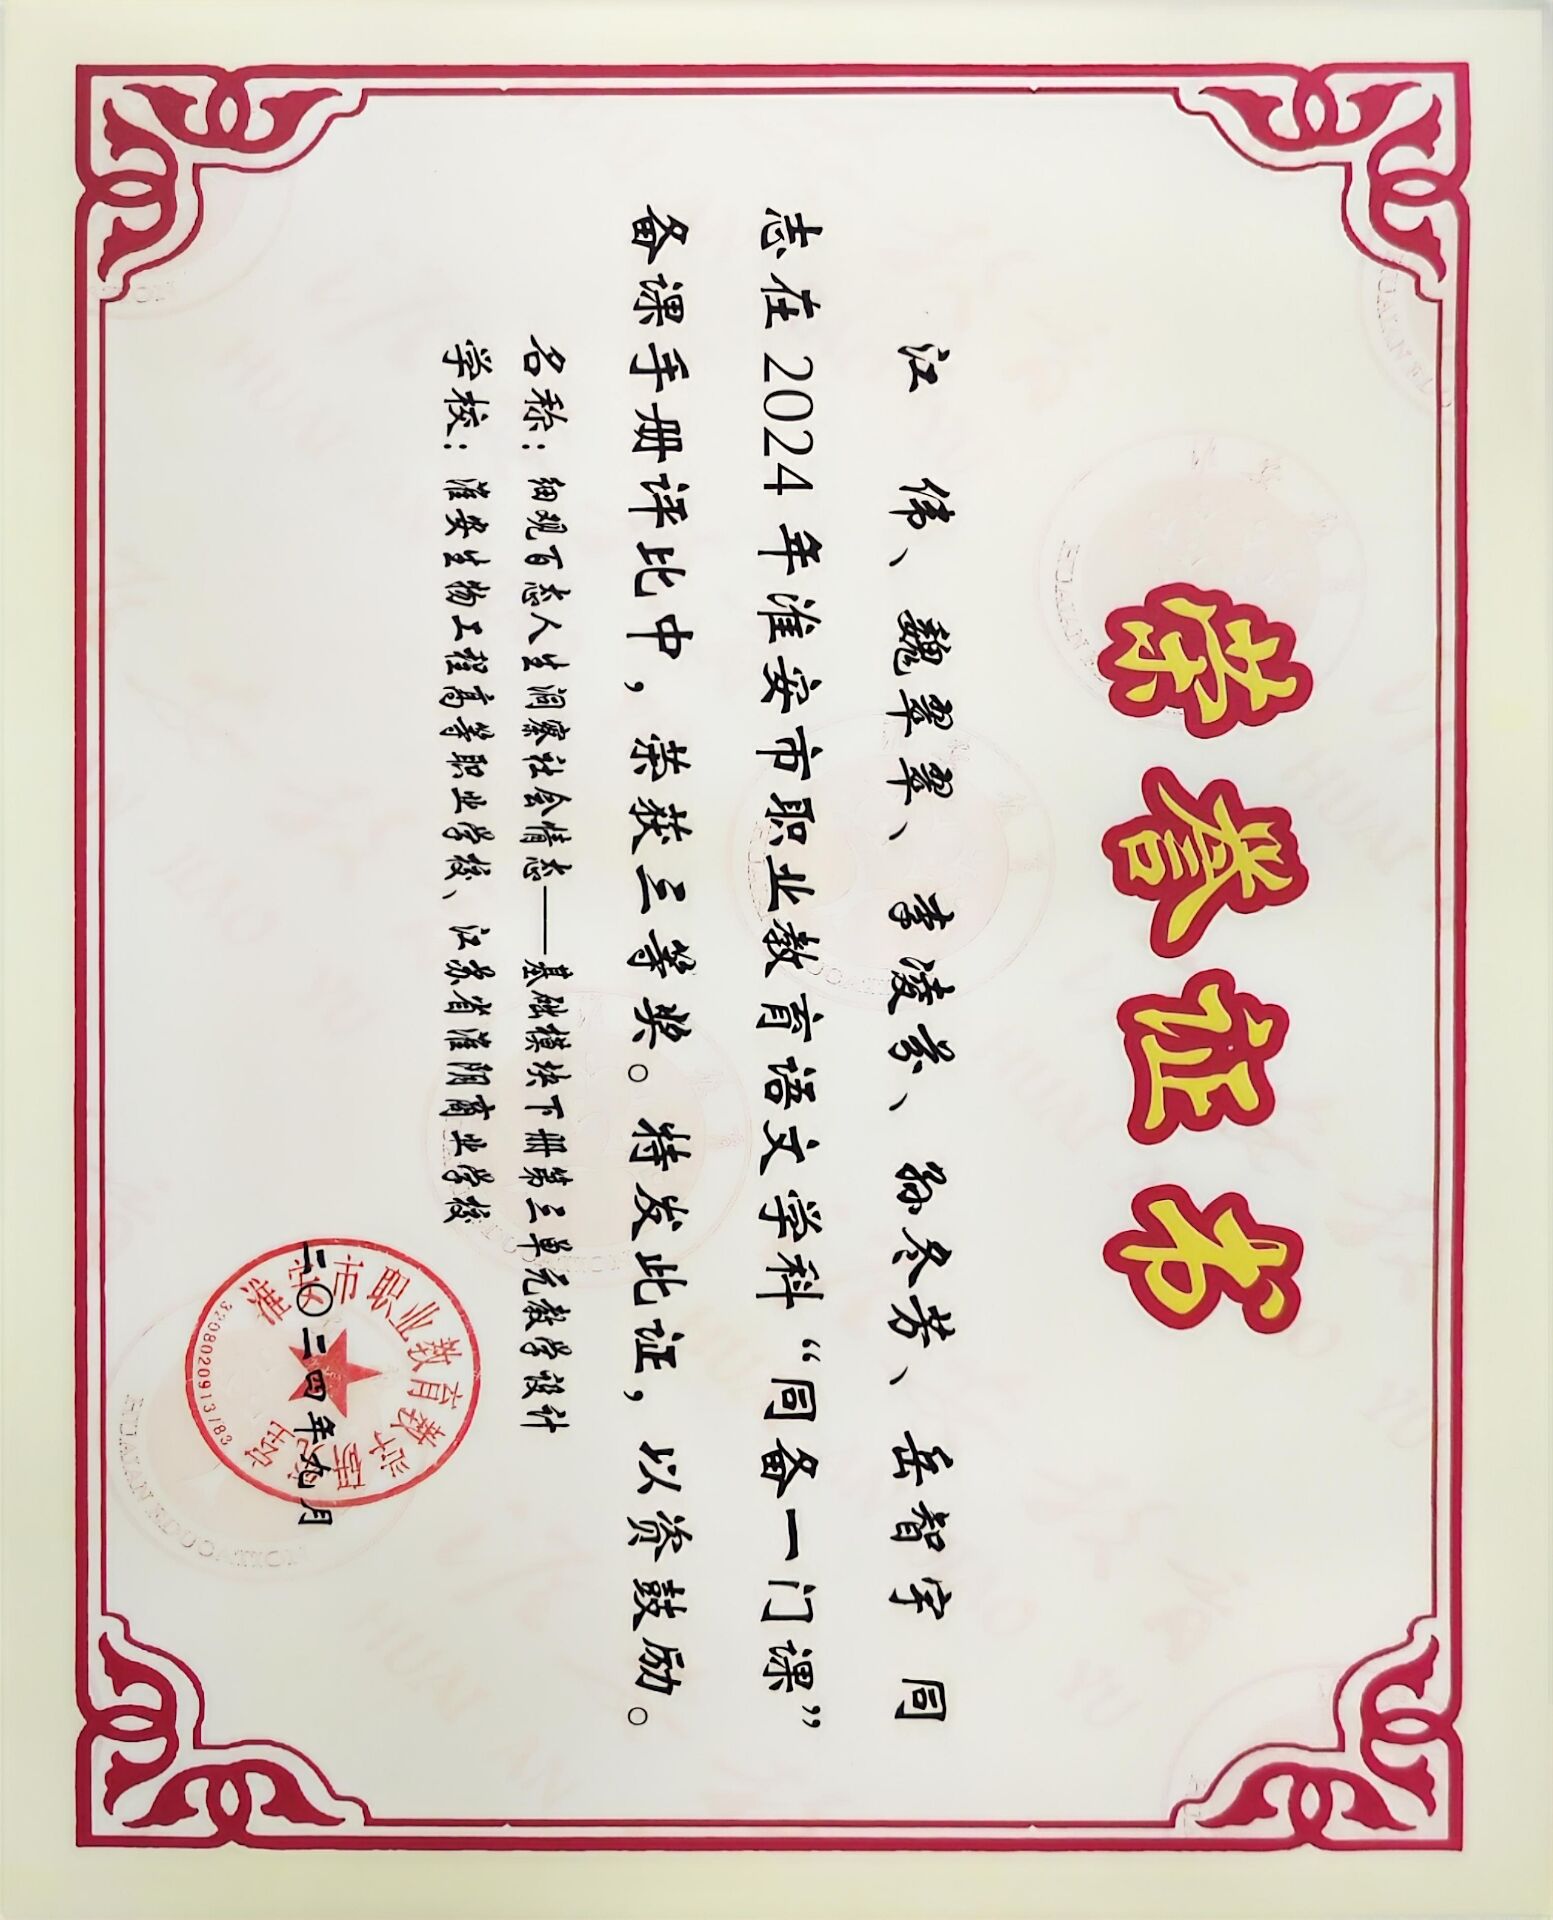 荣誉证书
江 伟、魏翠翠、李凌云、孙冬芳、岳智宇 同
志在2024年淮安市职业教育语文学科“同备一门课”
备课手册评比中，荣获三等奖。特发此证，以资鼓励。
名称：细观百态人生洞察社会情态——基础模块下册第三单元教学设计
学校：淮安生物工程高等职业学校、江苏省淮阴商业学校
二〇二四年九月
淮安市职业教育教学研究室
3208020913783
HUAIAN EDUCATION